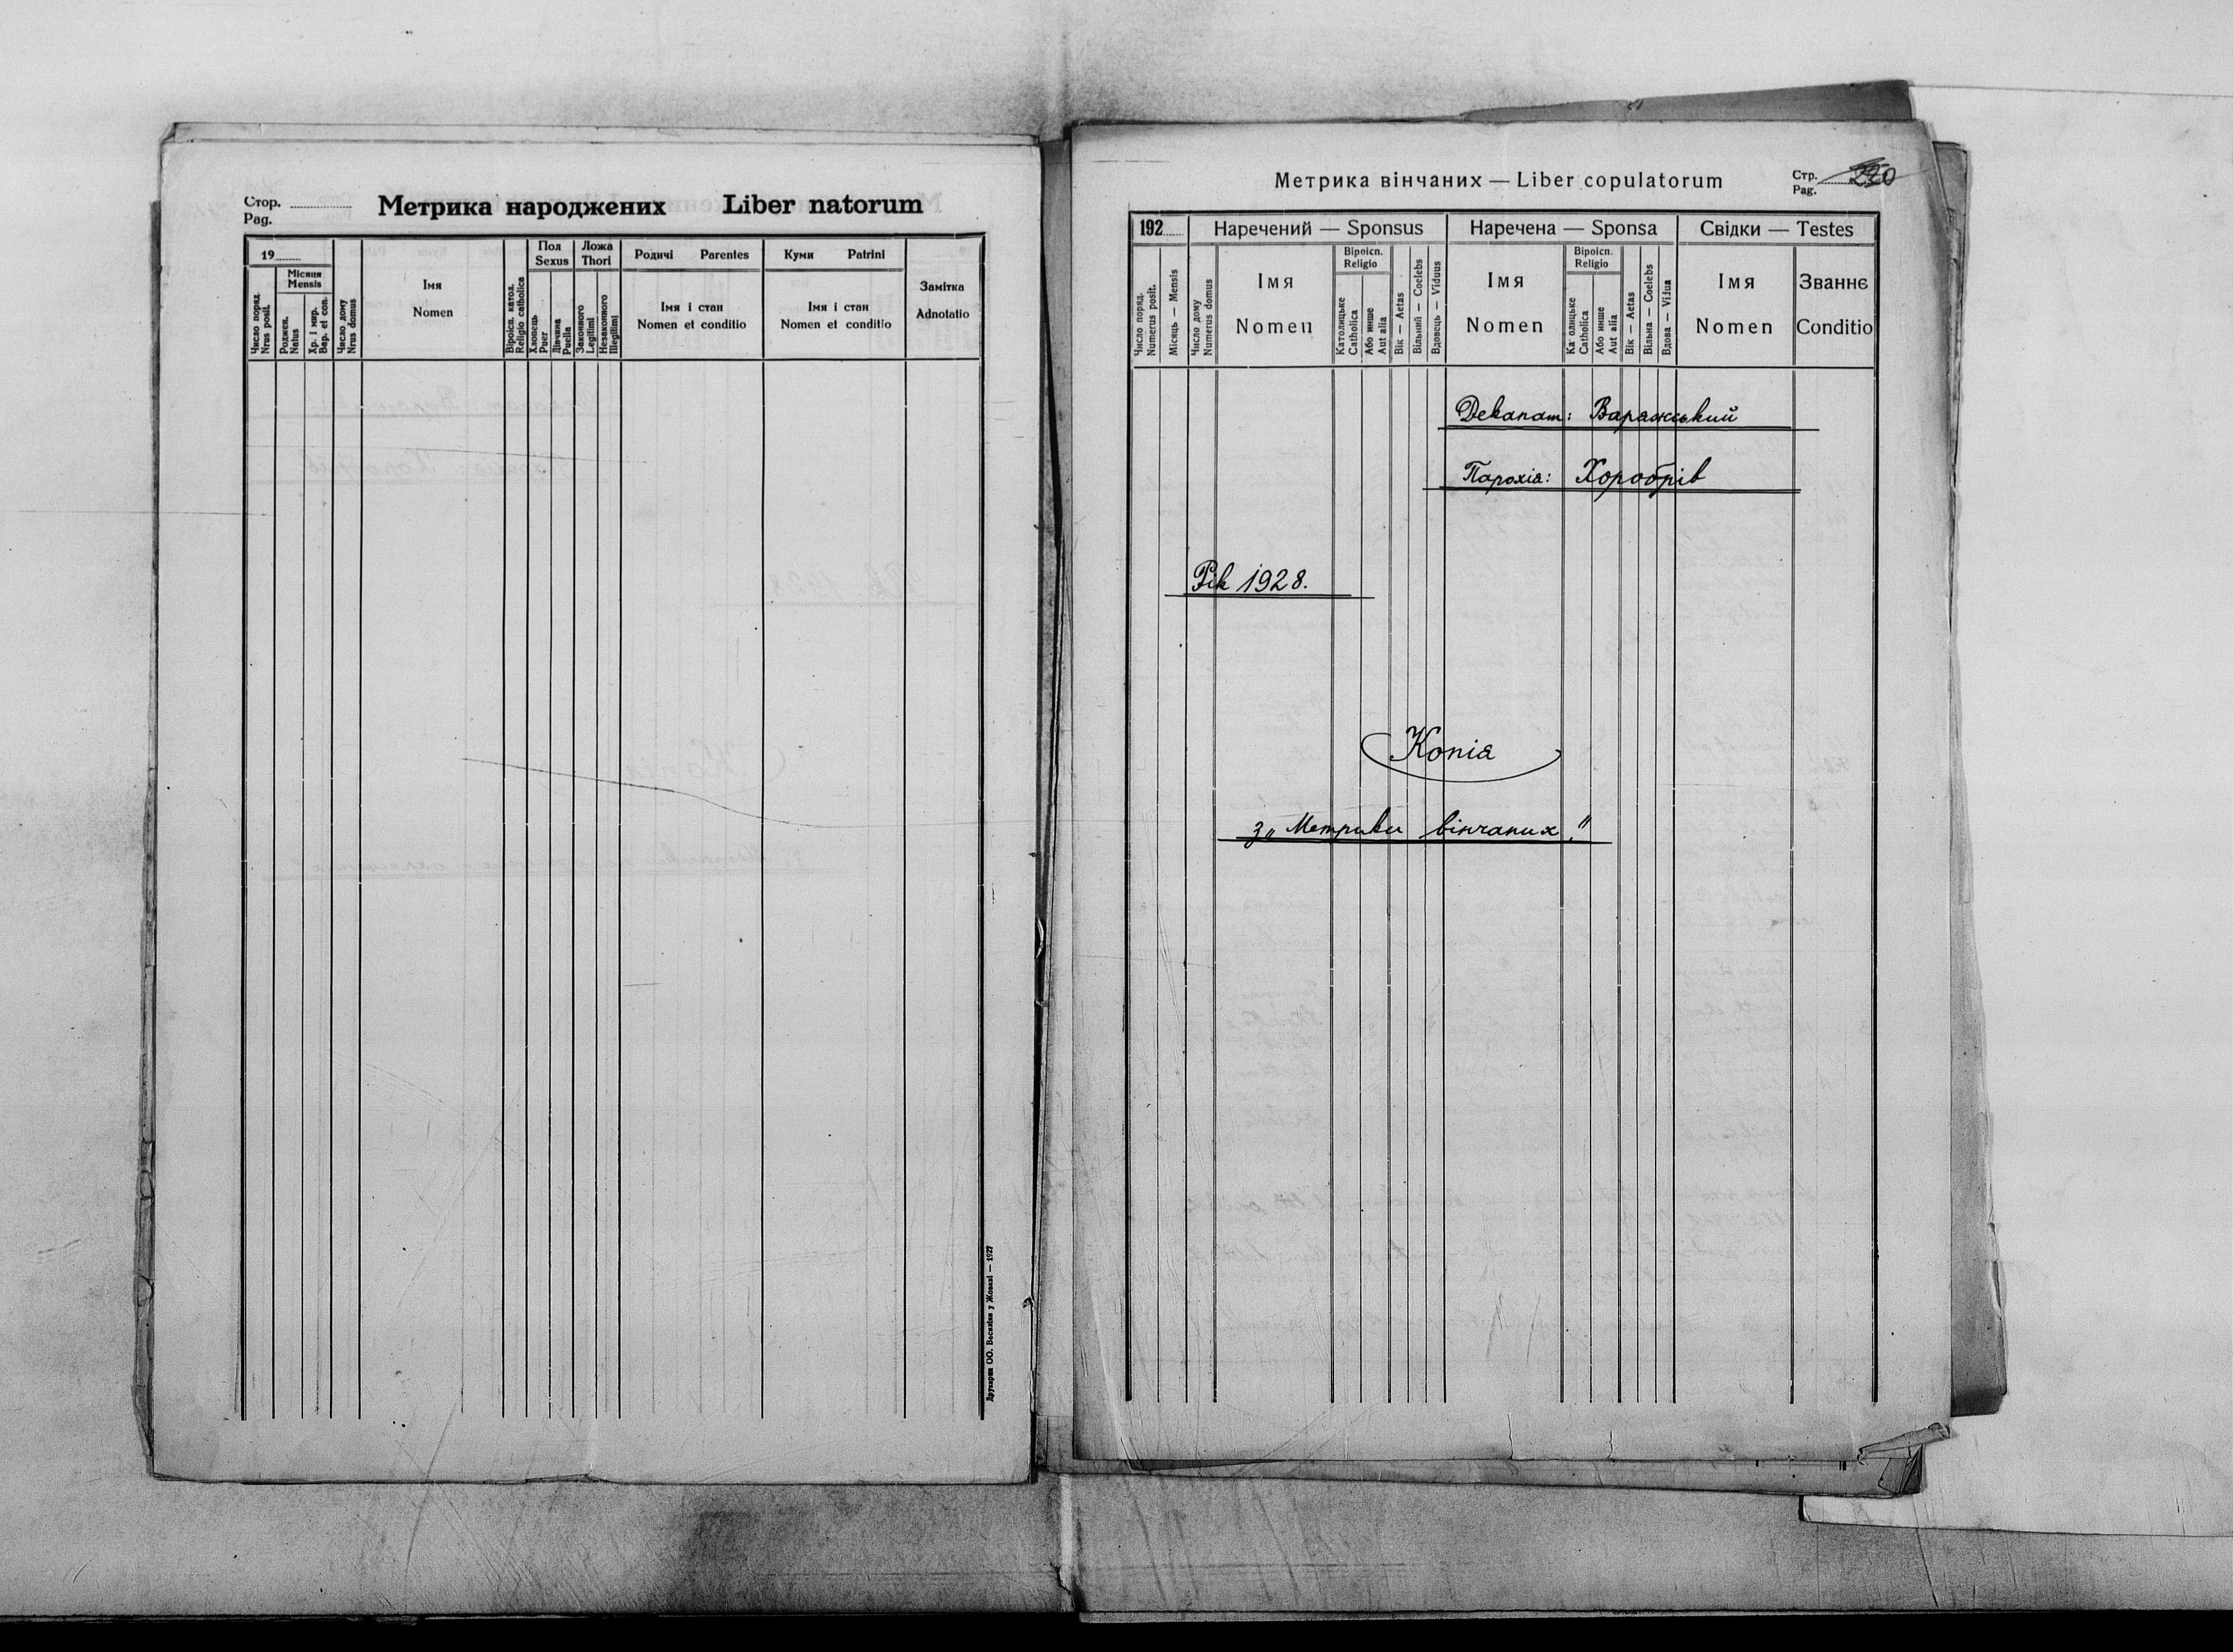 Стор.
Pag.
Метрика народжених Liber natorum
19
Число поряд.
Nrus posit.
Місяця
Mensis
Роджен.
Natus
Хр. і мир.
Bap. et con.
Число дому
Nrus domus
Імя
Nomen
Віроісп. катол.
Religio catholica
Пол
Sexus
Хлопець
Puer
Дівчина
Puella
Ложа
Thori
Законного
Legitimi
Незаконного
Illegitimi
Родичі Parentes
Імя і стан
Nomen et conditio
Куми Patrini
Імя і стан
Nomen et conditio
Замітка
Adnotatio
Друкарня ОО. Василіян у Жовкві — 1927
Метрика вінчаних — Liber copulatorum
Стр.
Pag.
192
Число поряд.
Numerus posit.
Місяць — Mensis
Наречений — Sponsus
Число дому
Numerus domus
Імя
Nomen
Віроісп.
Religio
Католицьке
Catholica
Або инше
Aut alia
Вік — Aetas
Вільний — Coelebs
Вдовець — Viduus
Наречена — Sponsa
Імя
Nomen
Віроісп.
Religio
Ка олицьке
Catholica
Або инше
Aut alia
Вік — Aetas
Вільна — Coelebs
Вдова — Vidua
Свідки — Testes
Імя
Nomen
Званнє
Conditio
Деканат: Варяжський
Парохія: Хоробрів
Рік 1928.
Копія
з „Метрики вінчаних"